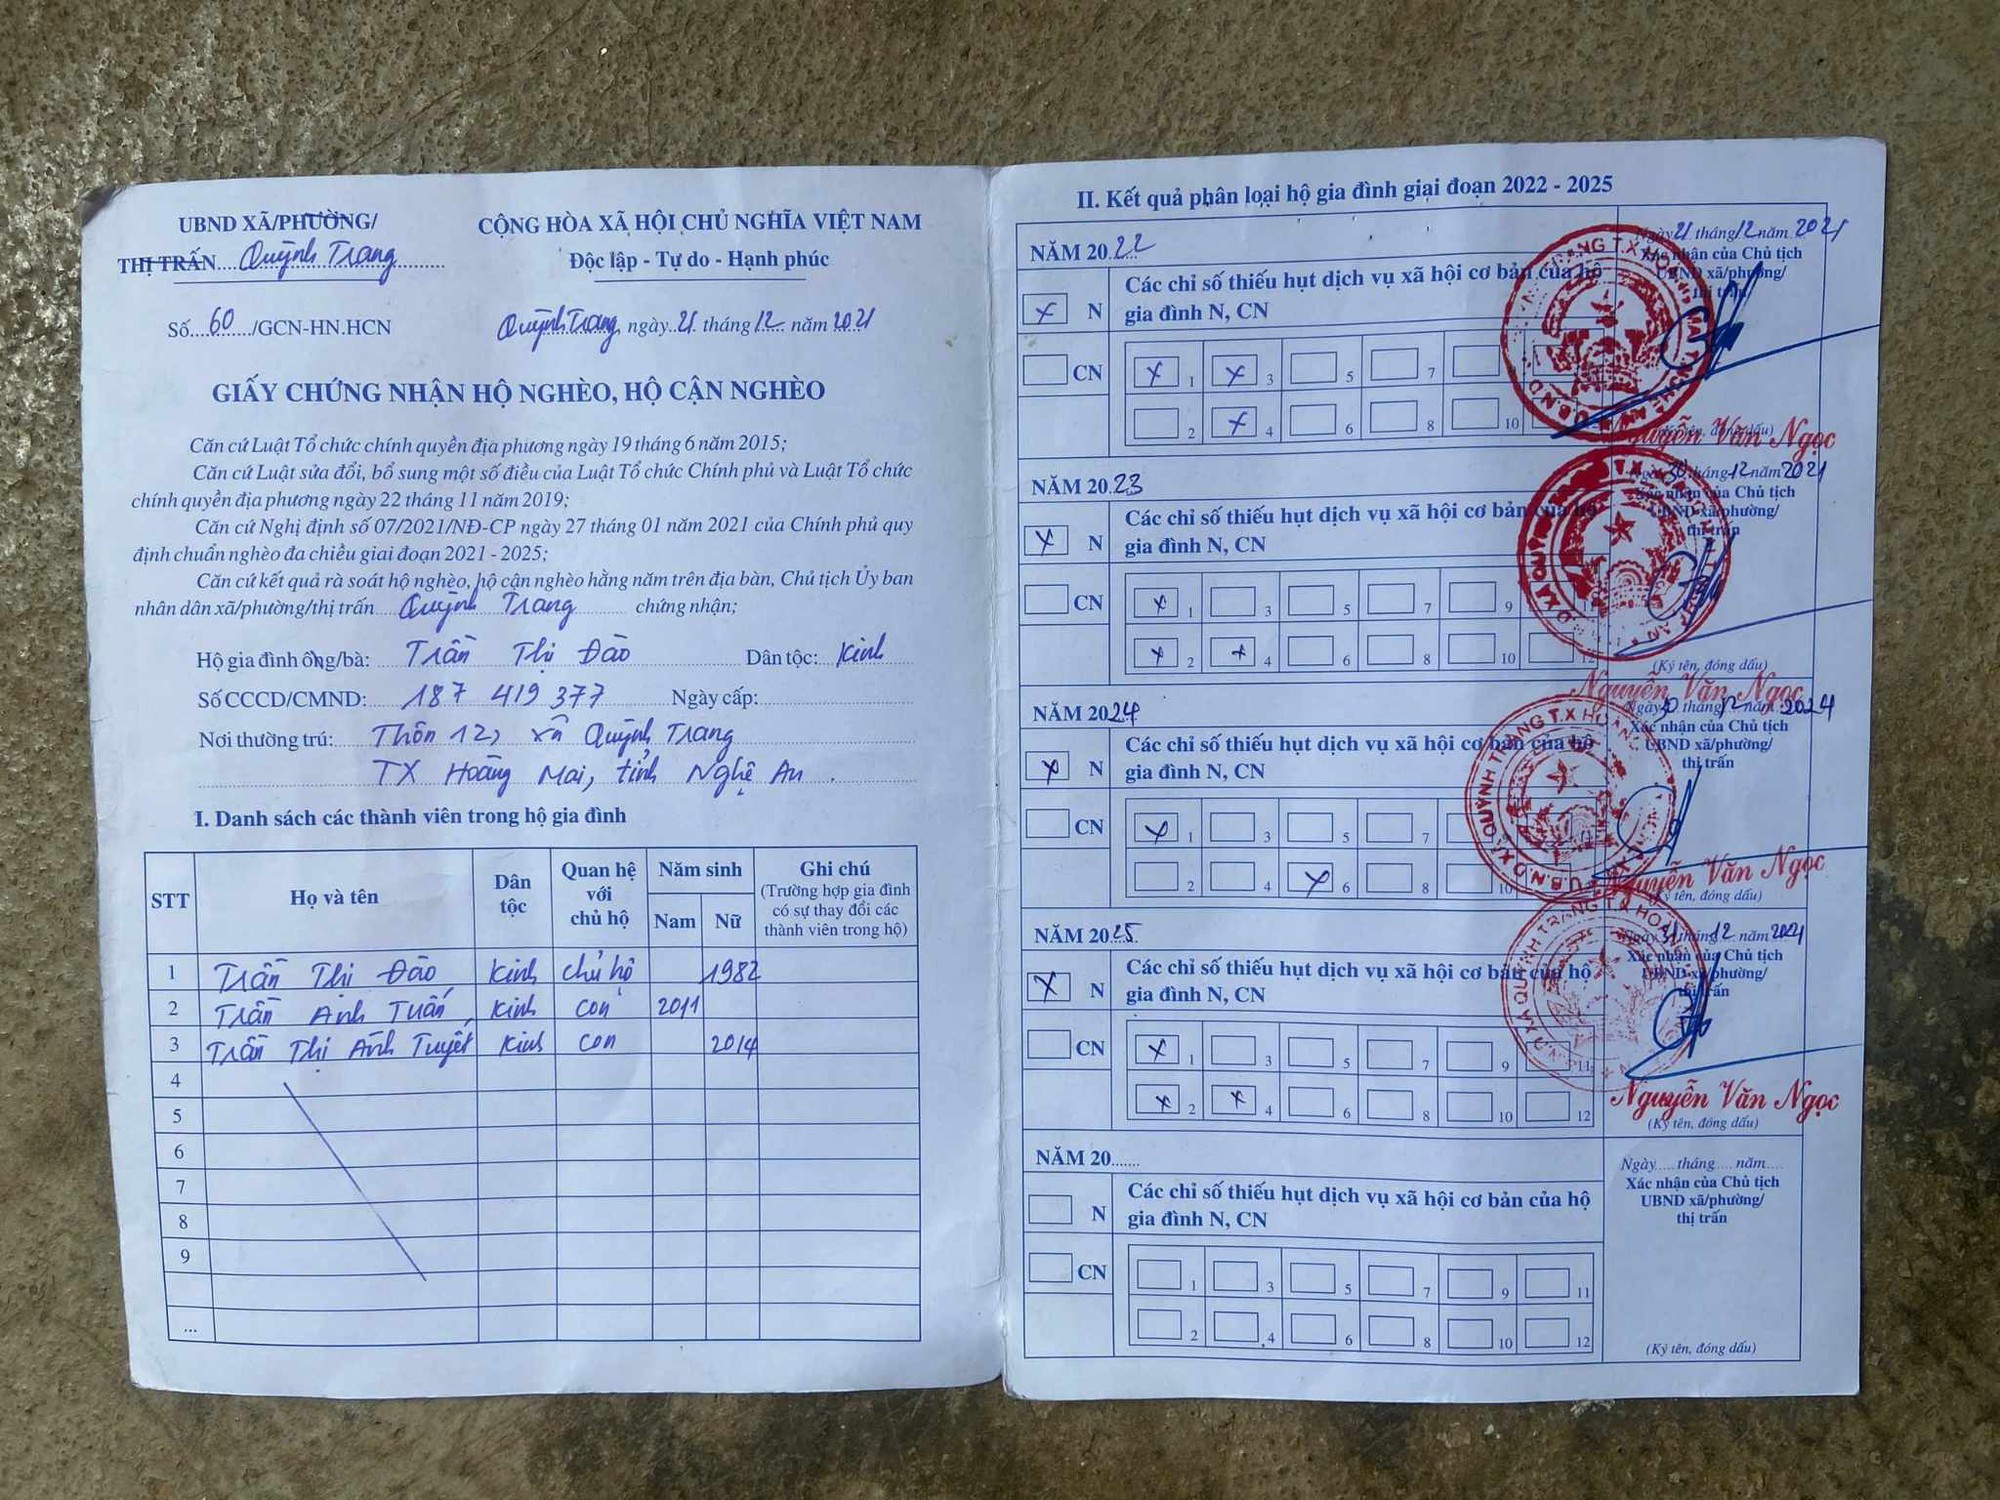 UBND XÃ/PHƯỜNG/
THỊ TRẤN....Quỳnh Trang
CỘNG HÒA XÃ HỘI CHỦ NGHĨA VIỆT NAM
Độc lập - Tự do - Hạnh phúc
Số...60.../GCN-HN.HCN
Quỳnh Trang, ngày..21.. tháng 12.. năm 2021
GIẤY CHỨNG NHẬN HỘ NGHÈO, HỘ CẬN NGHÈO
Căn cứ Luật Tổ chức chính quyền địa phương ngày 19 tháng 6 năm 2015;
Căn cứ Luật sửa đổi, bổ sung một số điều của Luật Tổ chức Chính phủ và Luật Tổ chức
chính quyền địa phương ngày 22 tháng 11 năm 2019;
Căn cứ Nghị định số 07/2021/NĐ-CP ngày 27 tháng 01 năm 2021 của Chính phủ quy
định chuẩn nghèo đa chiều giai đoạn 2021 - 2025;
Căn cứ kết quả rà soát hộ nghèo, hộ cận nghèo hằng năm trên địa bàn, Chủ tịch Ủy ban
nhân dân xã/phường/thị trấn Quỳnh Trang chứng nhận;
Hộ gia đình ông/bà: Trần Thị Đào Dân tộc: Kinh
Số CCCD/CMND: 187 419 377 Ngày cấp:
Nơi thường trú: Thôn 12, xã Quỳnh Trang
TX Hoàng Mai, tỉnh Nghệ An.
I. Danh sách các thành viên trong hộ gia đình
STT Họ và tên Dân tộc Quan hệ với chủ hộ Năm sinh Nam Nữ Ghi chú (Trường hợp gia đình có sự thay đổi các thành viên trong hộ)
1 Trần Thị Đào Kinh chủ hộ 1982
2 Trần Anh Tuấn Kinh con 2011
3 Trần Thị Ánh Tuyết Kinh con 2014
4
5
6
7
8
9
...
II. Kết quả phân loại hộ gia đình giai đoạn 2022 - 2025
NĂM 2022
Ngày 21 tháng 12 năm 2021
Xác nhận của Chủ tịch
UBND xã/phường/
thị trấn
Các chỉ số thiếu hụt dịch vụ xã hội cơ bản của hộ
x N gia đình N, CN
CN
x 1 x 3 5 7
2 x 4 6 8 10
(Ký tên, đóng dấu)
Nguyễn Văn Ngọc
NĂM 2023
Ngày 30 tháng 12 năm 2021
Xác nhận của Chủ tịch
UBND xã/phường/
thị trấn
Các chỉ số thiếu hụt dịch vụ xã hội cơ bản của hộ
x N gia đình N, CN
CN
x 1 3 5 7 9 11
x 2 x 4 6 8 10 12
(Ký tên, đóng dấu)
Nguyễn Văn Ngọc
NĂM 2024
Ngày 30 tháng 12 năm 2024
Xác nhận của Chủ tịch
UBND xã/phường/
thị trấn
Các chỉ số thiếu hụt dịch vụ xã hội cơ bản của hộ
x N gia đình N, CN
CN
x 1 3 5 7
2 4 x 6 8 10
Nguyễn Văn Ngọc
(Ký tên, đóng dấu)
NĂM 2025
Ngày 31 tháng 12 năm 2021
Xác nhận của Chủ tịch
UBND xã/phường/
thị trấn
Các chỉ số thiếu hụt dịch vụ xã hội cơ bản của hộ
x N gia đình N, CN
CN
x 1 3 5 7 9 11
x 2 x 4 6 8 10 12
Nguyễn Văn Ngọc
(Ký tên, đóng dấu)
NĂM 20.......
Ngày.... tháng.... năm....
Xác nhận của Chủ tịch
UBND xã/phường/
thị trấn
Các chỉ số thiếu hụt dịch vụ xã hội cơ bản của hộ
N gia đình N, CN
CN
1 3 5 7 9 11
2 4 6 8 10 12
(Ký tên, đóng dấu)